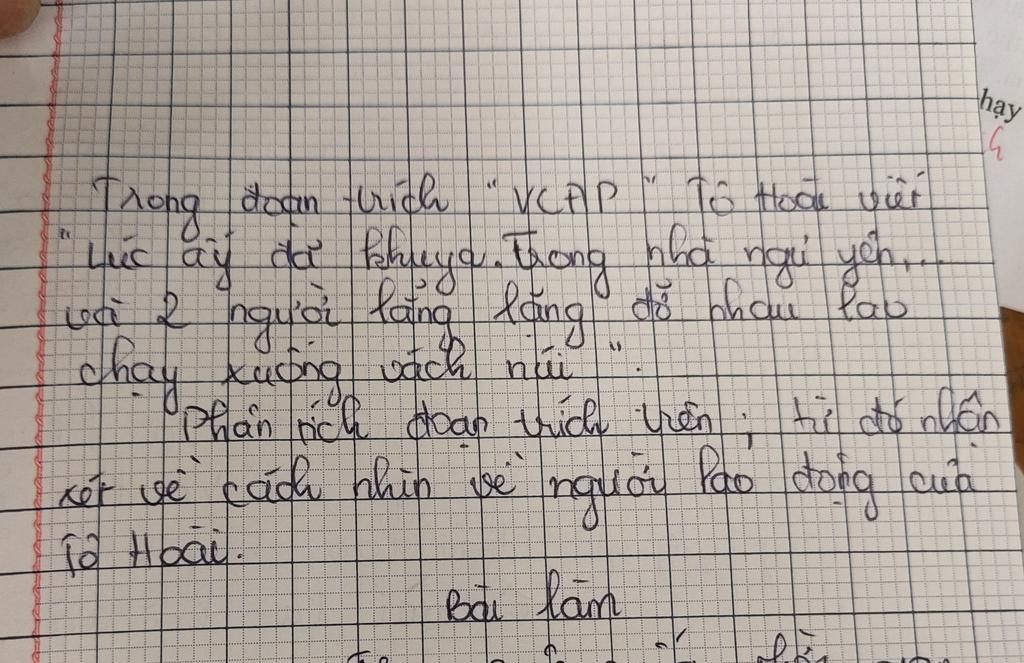 hạy
Trong đoạn trích "VCAP" Tô Hoài viết
"Lúc ấy đã khuya. Trong nhà ngủ yên...
và 2 người lẳng lặng đỡ nhau lao
chạy xuống vách núi".
Phân tích đoạn trích trên; từ đó nhận
xét về cách nhìn về người lao động của
Tô Hoài.
Bài làm